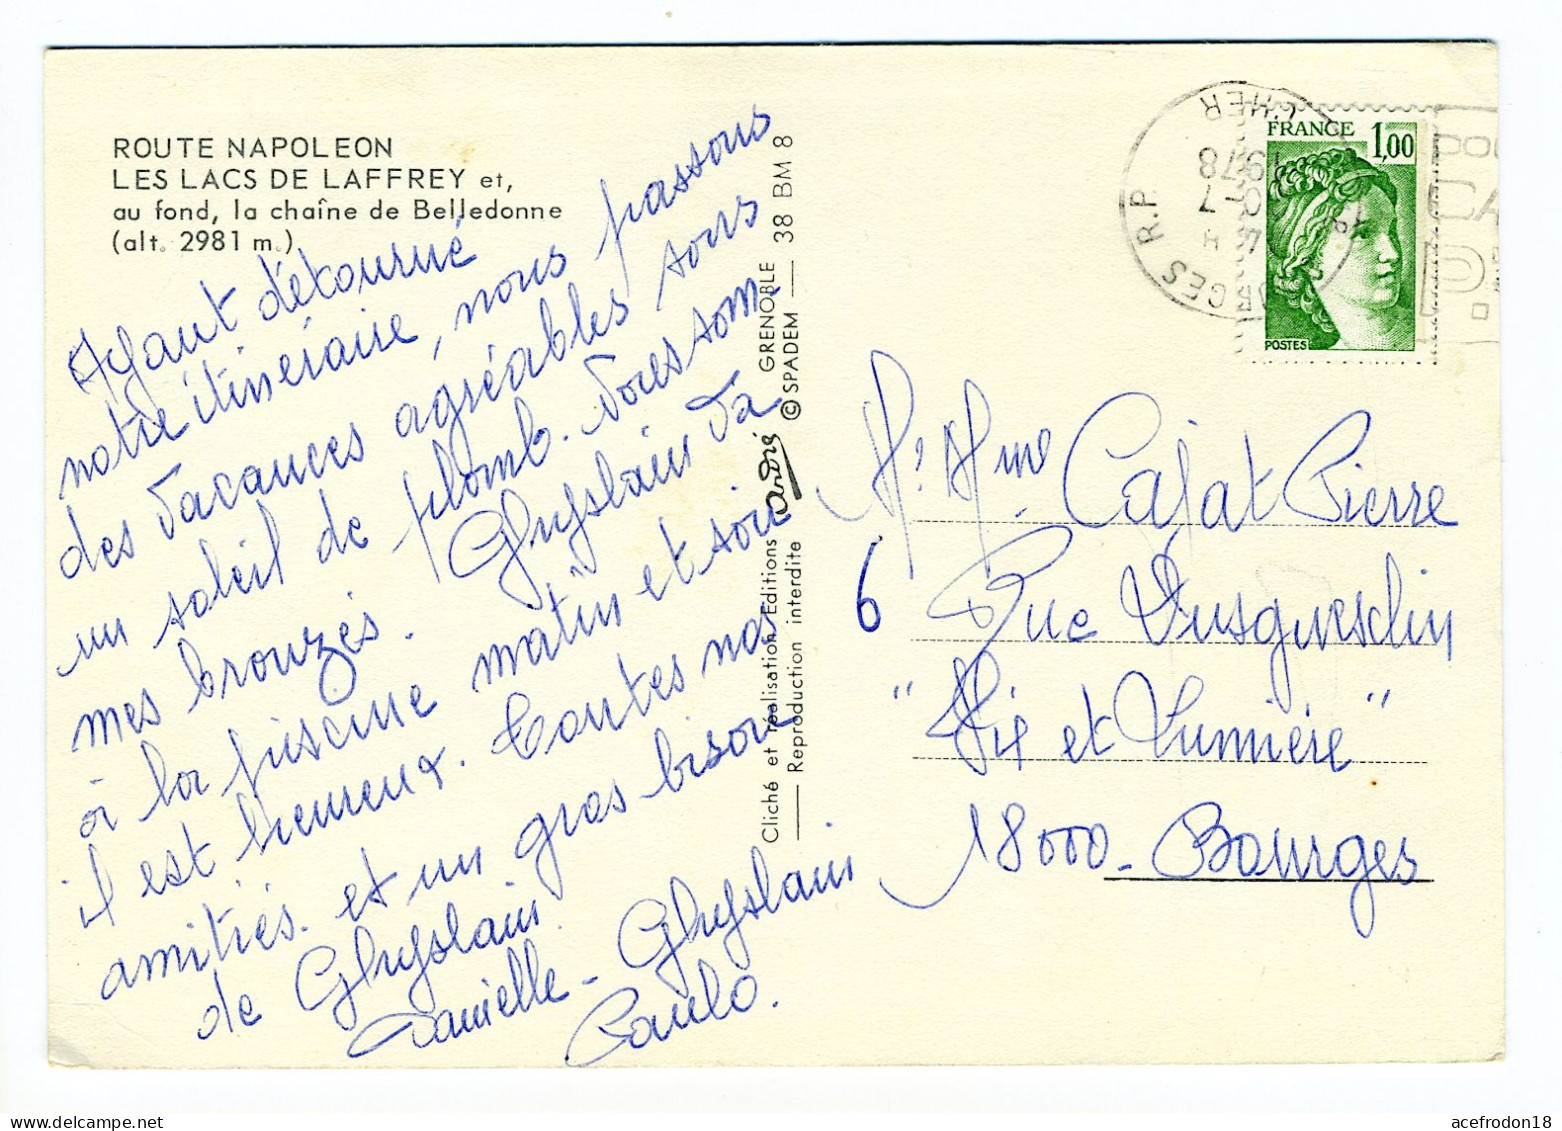 ROUTE NAPOLEON
LES LACS DE LAFFREY et,
au fond, la chaîne de Belledonne
(alt. 2981 m.)
Ayant détourné
notre itinéraire, nous passons
des vacances agréables sous
un soleil de plomb. Nous som-
mes bronzés. Ghyslain va
à la piscine matin et soir
il est heureux. Toutes nos
amitiés. et un gros bisou
de Ghyslain.
Danielle - Ghyslain
Paulo.
Cliché et réalisation Editions andris GRENOBLE
Reproduction interdite © SPADEM 38 BM 8
BOURGES R.P.
CHER
1978
FRANCE 1,00
POSTES
Mr Mme Cajat Pierre
6 Rue Dusguesclin
"Vie et Lumière"
18000 - Bourges
acefrodon18